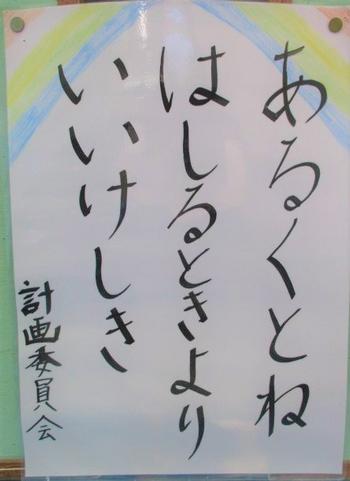 あるくとね
はしるときより
いいけしき
計画委員会